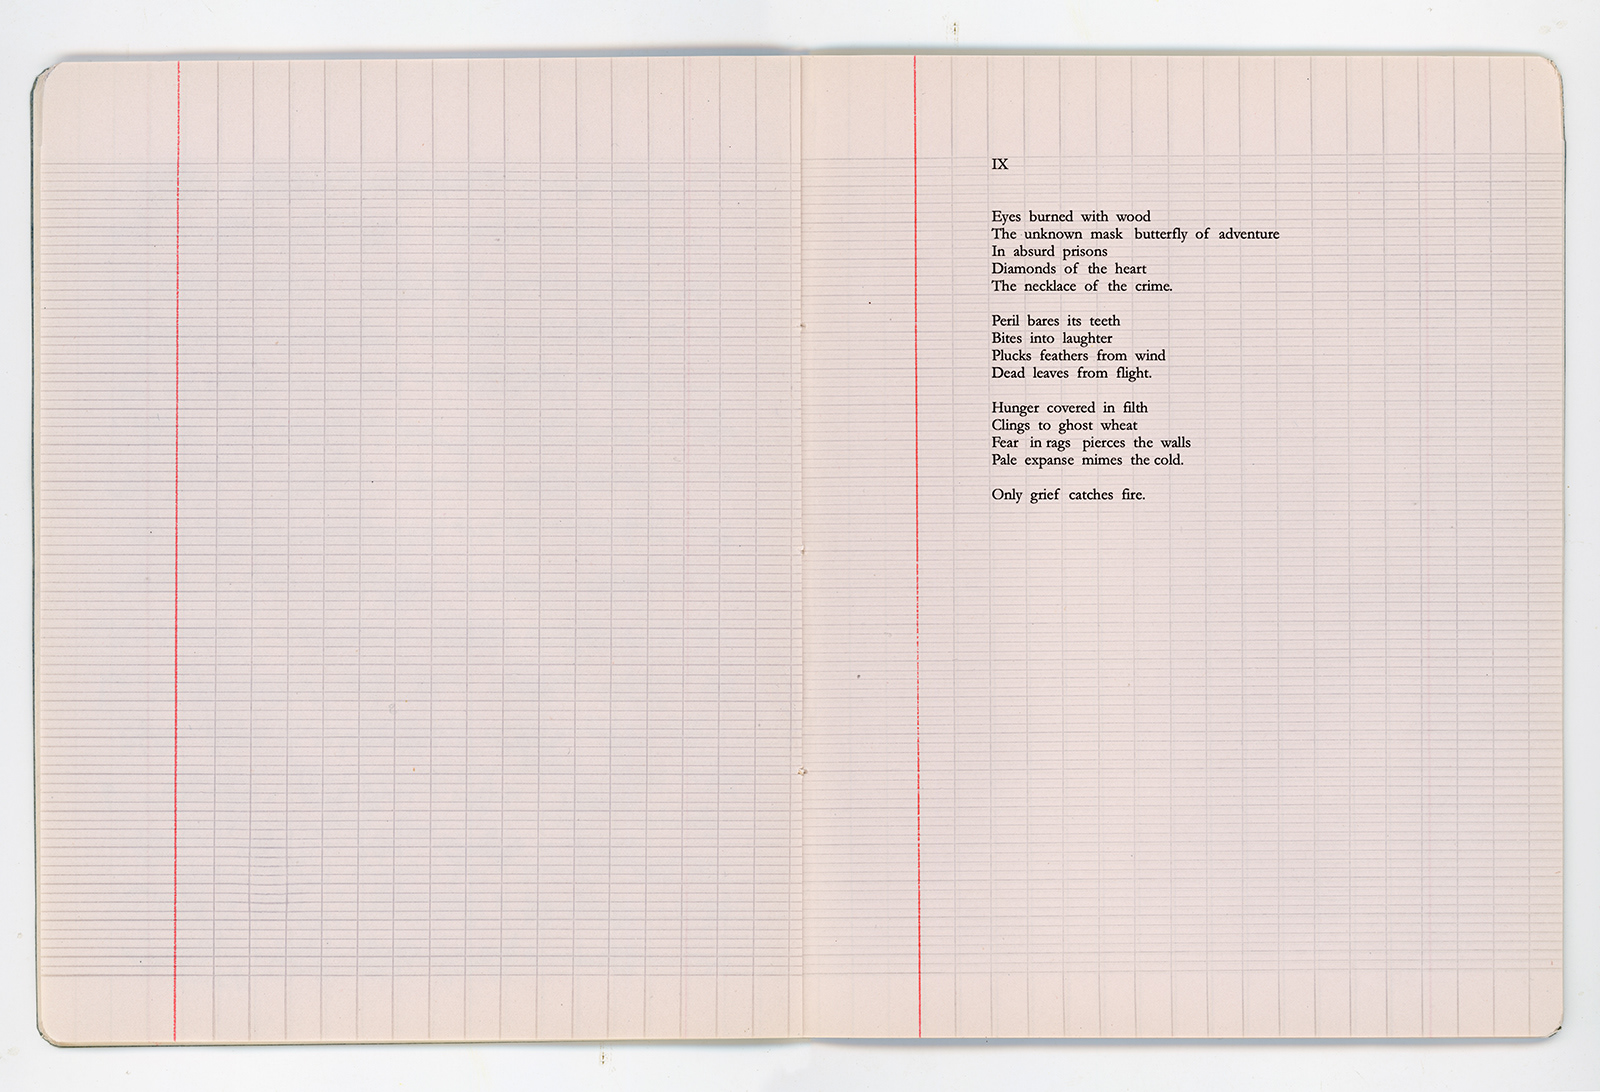 IX

Eyes burned with wood
The unknown mask butterfly of adventure
In absurd prisons
Diamonds of the heart
The necklace of the crime.

Peril bares its teeth
Bites into laughter
Plucks feathers from wind
Dead leaves from flight.

Hunger covered in filth
Clings to ghost wheat
Fear in rags pierces the walls
Pale expanse mimes the cold.

Only grief catches fire.